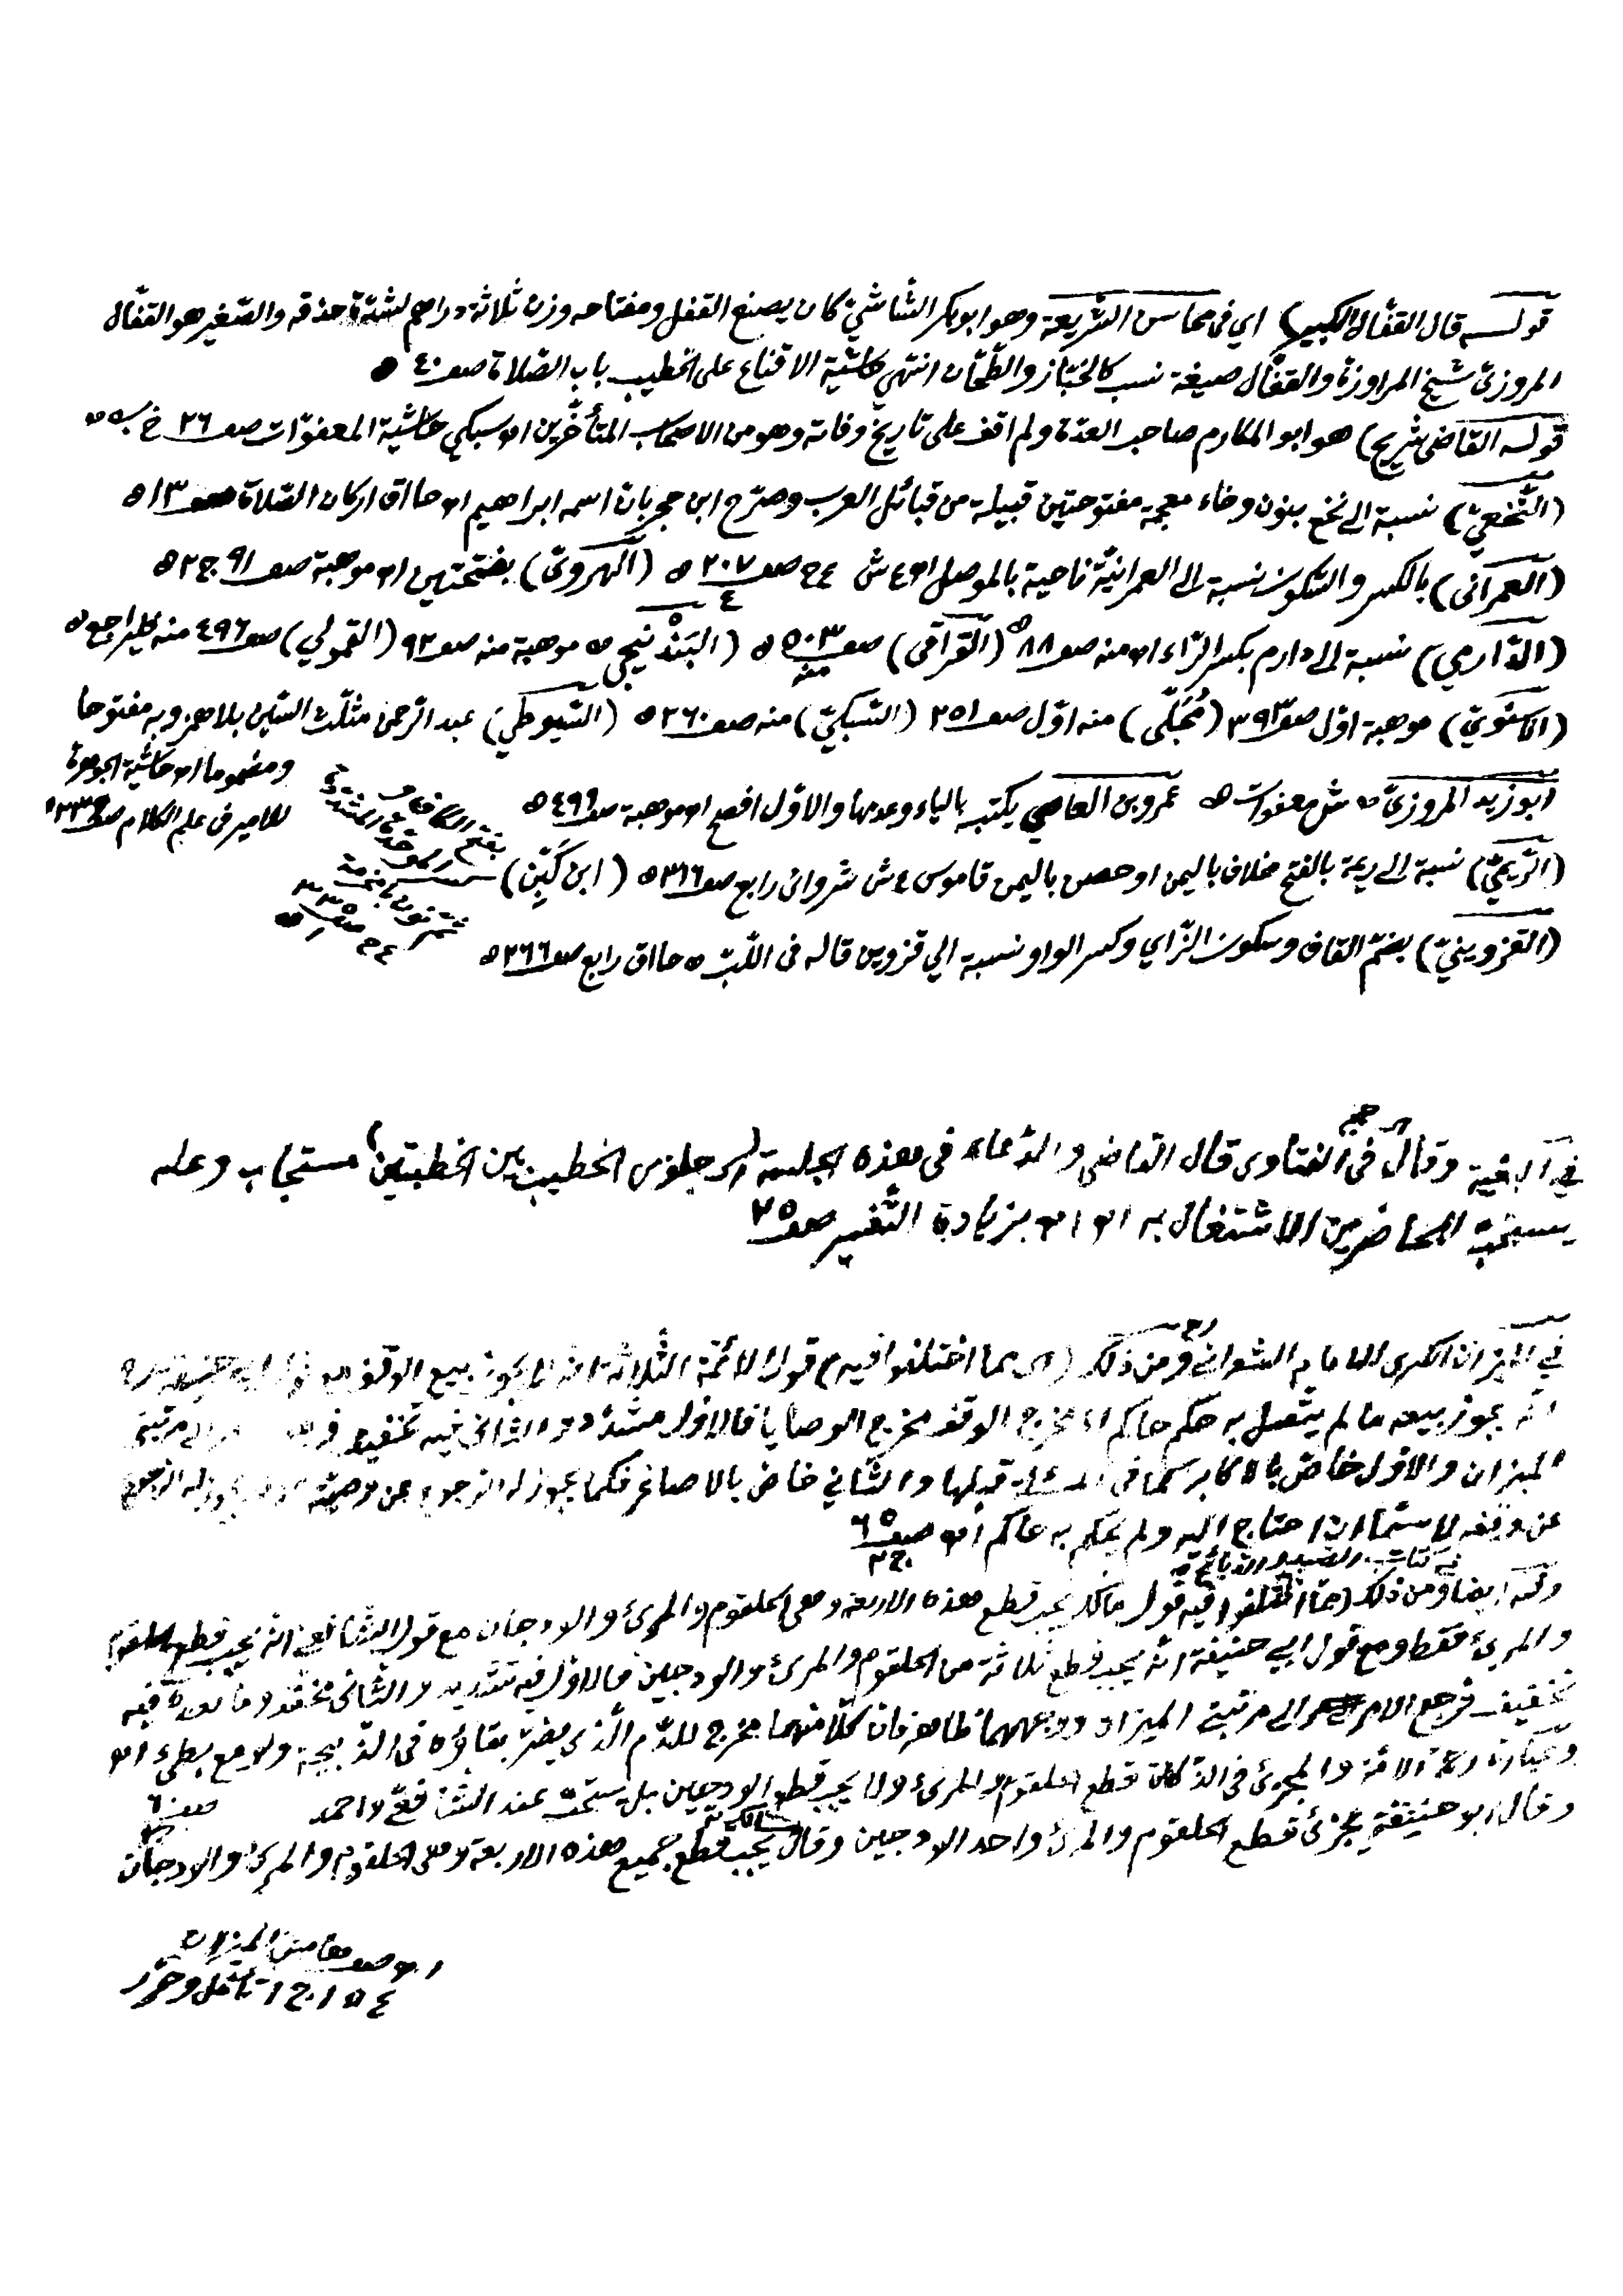 قولـه قال القفّال الكبير) اي في محاسن الشّريعة وهو ابوبكر الشّاشيّ كان يصنع القفل ومفتاحه وزن ثلاثة دراهم لشدّة حذقه والصّغير هو القفّال
المروزيّ شيخ المراوزة والقفّال صيغة نسب كالخبّاز والطّحّان انتهى حاشية الاقناع على الخطيب باب الصّلاة صف ٤٠ ه
قولـه القاضى شريح) هو ابو المكارم صاحب العدّة ولم اقف على تاريخ وفاته وهو من الاصحاب المتأخّرين اه سبكي حاشية المعفوّات صف ٢٦
(النّخعيّ) نسبة الى نخع بنون وخاء معجمة مفتوحتين قبيلة من قبائل العرب وصرّح ابن حجر بانّ اسمه ابراهيم اه حا اق اركان الصّلاة صف ١٣ ه
(العمرانى) بالكسر والسّكون نسبة الى العمرانيّة ناحية بالموصل اه ع ش ع ح صف ٢٠٧ ٤ ه (الهرويّ) بفتحتين اه موهبة صف ٩١ ج ٢ ه
(الدّارمي) نسبة الى دارم بكسر الرّاء اه منه صف ٨٨ ه (القرافى) صف ٥٠٣ منه ه (البَنْدنيجى ه موهبة منه صف ٩٢ (القمولي) صف ٤٩٦ منه فليراجع ه
(الاسنويّ) موهبة اوّل صف ٣٩٣ (مُجَلّى) منه اوّل صف ٢٥١ (السّبكيّ) منه صف ٢٦٠ ه (السّيوطيّ) عبد الرّحمن مثلّث السّين بلا همز وبه مفتوحا
ومضموما اه حاشية الجوهرة
للامير فى علم الكلام صف
ابوزيد المروزيّ ه ش معفوات ه عمرو بن العاصي يكتب بالياء وعدمها والاوّل افصح اه موهبة صف ٤٩٦ ه
(الرّيميّ) نسبة الى ريمة بالفتح مخلاف باليمن او حصن باليمن قاموس ع ش شروانى رابع صف ٣١٦ ه (ابن كَبِّن)
(القزوينيّ) بضمّ القاف وسكون الزّاي وكسر الواو نسبة الي قزوين قاله فى اللّبّ ه حا اق رابع صف ٢٦٦ ه
في البغية وقال حجر فى الفتاوى قال القاضى والدّعاء فى هذه الجلسة (اى جلوس الخطيب بين الخطبتين) مستجاب وعليه
يستحبّ للحاضرين الاشتغال به اه اه بزيادة التّغيير صف
في الميزان الكبرى للامام الشعرانى ومن ذلك (اى ممّا اختلفوا فيه) قول الائمّة الثّلاثة انه لا يجوز بيع الوقف مع قول ابى حنيفة
انّه يجوز بيعه ما لم يتّصل به حكم حاكم او يخرج الوقف مخرج الوصايا فالاوّل مشدّد والثّانى فيه تخفيف مرتبتى
الميزان والاوّل خاصّ بالاكابر كما فى المسئلة قبلها والثّاني خاصّ بالاصاغر فكما يجوز له الرجوع عن الوصيّة
عن وقفه لا سيّما ان احتاج اليه ولم يحكم به حاكم اه صف ٦٥ ج ٢
فى كتاب الصّيد والذّبائح
وفيه ايضا ومن ذلك (ممّا اختلفوا فيه) قول مالك يجب قطع هذه الاربعة وهى الحلقوم والمرئ والاودجان مع قول الشّافعىّ انّه يجب قطع الحلقوم
والمرئ فقط ومع قول ابي حنيفة انّه يجب قطع ثلاثة من الحلقوم والمرئ والودجين فالاوّل فيه تشديد والثّانى مخفّف وما بعده فيه
تخفيف فرجع الامر الى مرتبتى الميزان ووجههما ظاهر فان كلّا منهما مخرج للدّم الّذى يضرّ بقاؤه فى الذّبيحة ولو مع بطئ اه
وعبارة رحمة الامّة والمجزئ فى الذّكاة قطع الحلقوم والمرئ ولا يجب قطع الودجين بل يستحبّ عند الشّافعىّ واحمد
وقال ابو حنيفة يجزئ قطع الحلقوم والمرئ واحد الاودجين وقال مالك يجب قطع جميع هذه الاربعة وهى الحلقوم والمرئ والاودجان
اه صف هامش الميزان
١٥٤ ج ١ تأمّل وحرّر